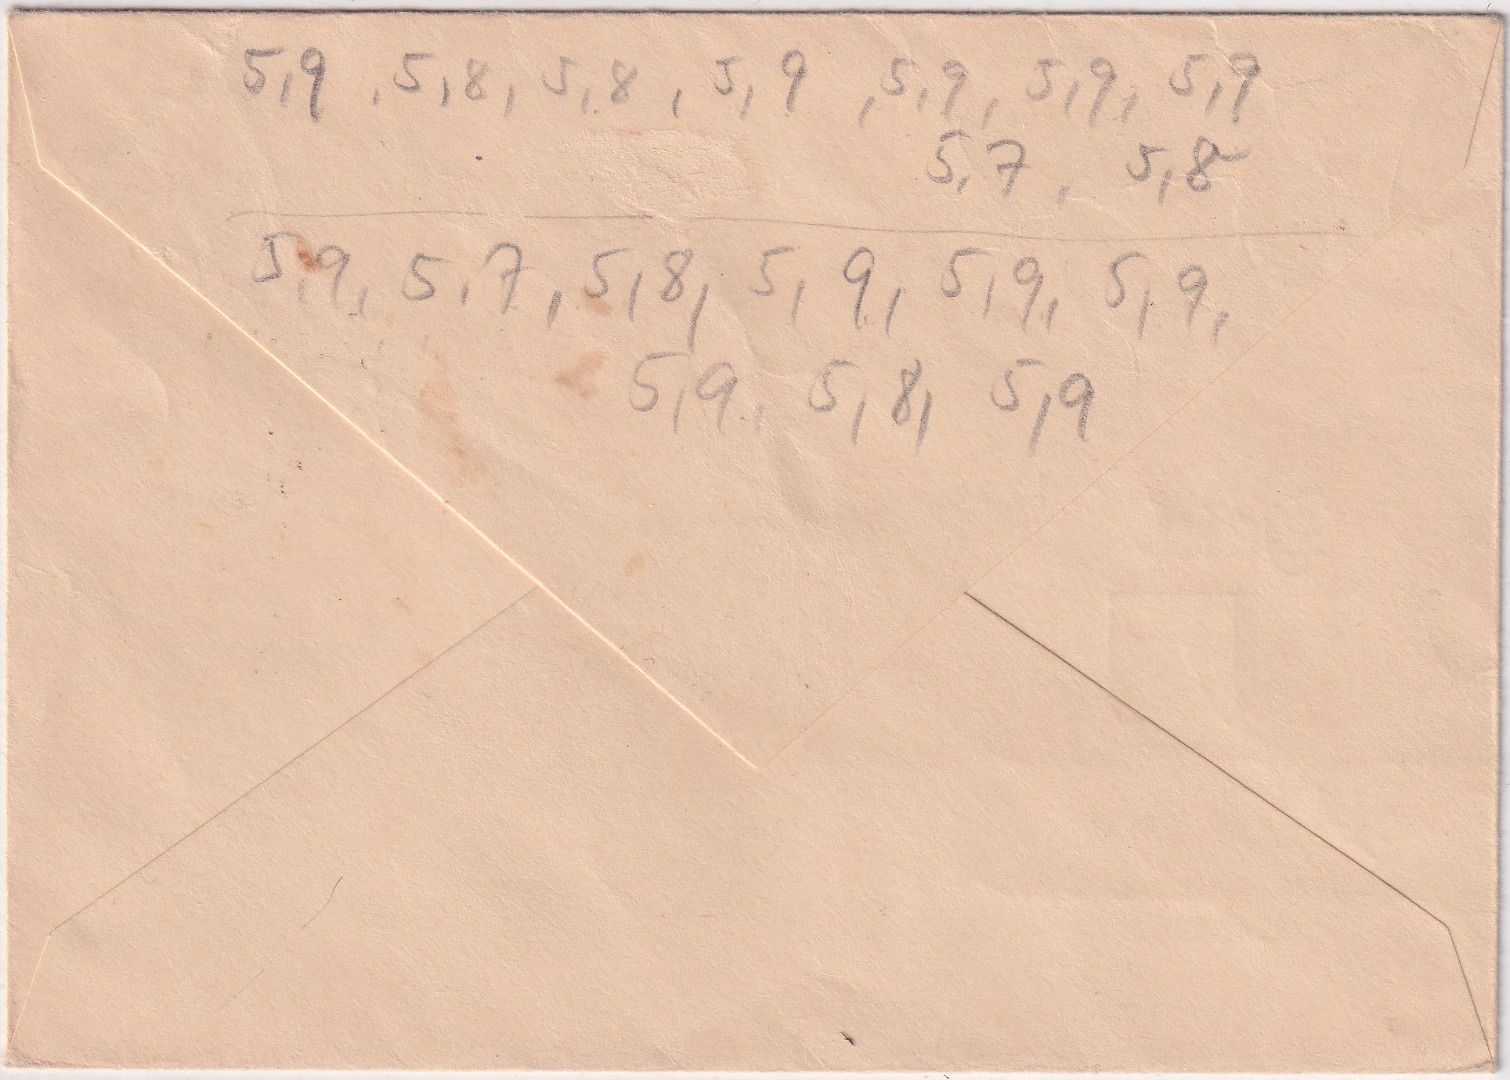 5,9 , 5,8, 5,8 , 5,9 , 5,9, 5,9, 5,9
5,7 , 5,8
5,9, 5,7, 5,8, 5,9, 5,9, 5,9,
5,9, 5,8, 5,9